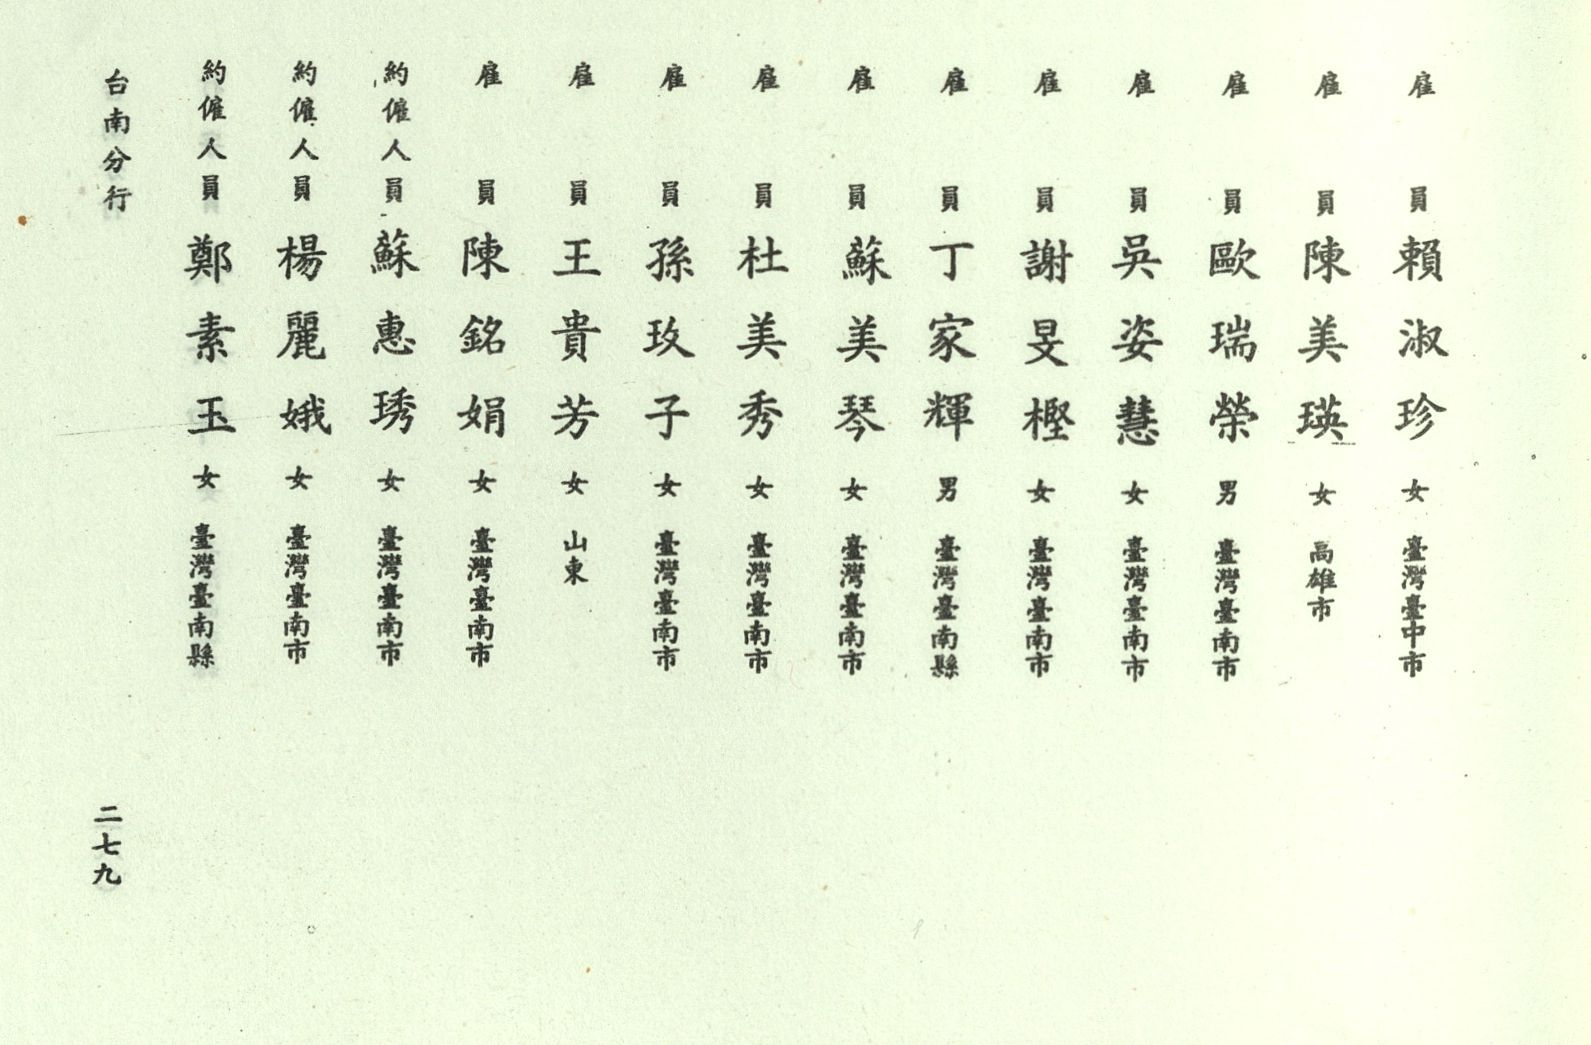 雇員賴淑珍女臺灣臺中市
雇員陳美瑛女高雄市
雇員歐瑞榮男臺灣臺南市
雇員吳姿慧女臺灣臺南市
雇員謝旻樫女臺灣臺南市
雇員丁家輝男臺灣臺南縣
雇員蘇美琴女臺灣臺南市
雇員杜美秀女臺灣臺南市
雇員孫玫子女臺灣臺南市
雇員王貴芳女山東
雇員陳銘娟女臺灣臺南市
約僱人員蘇惠琇女臺灣臺南市
約僱人員楊麗娥女臺灣臺南市
約僱人員鄭素玉女臺灣臺南縣
台南分行
二七九